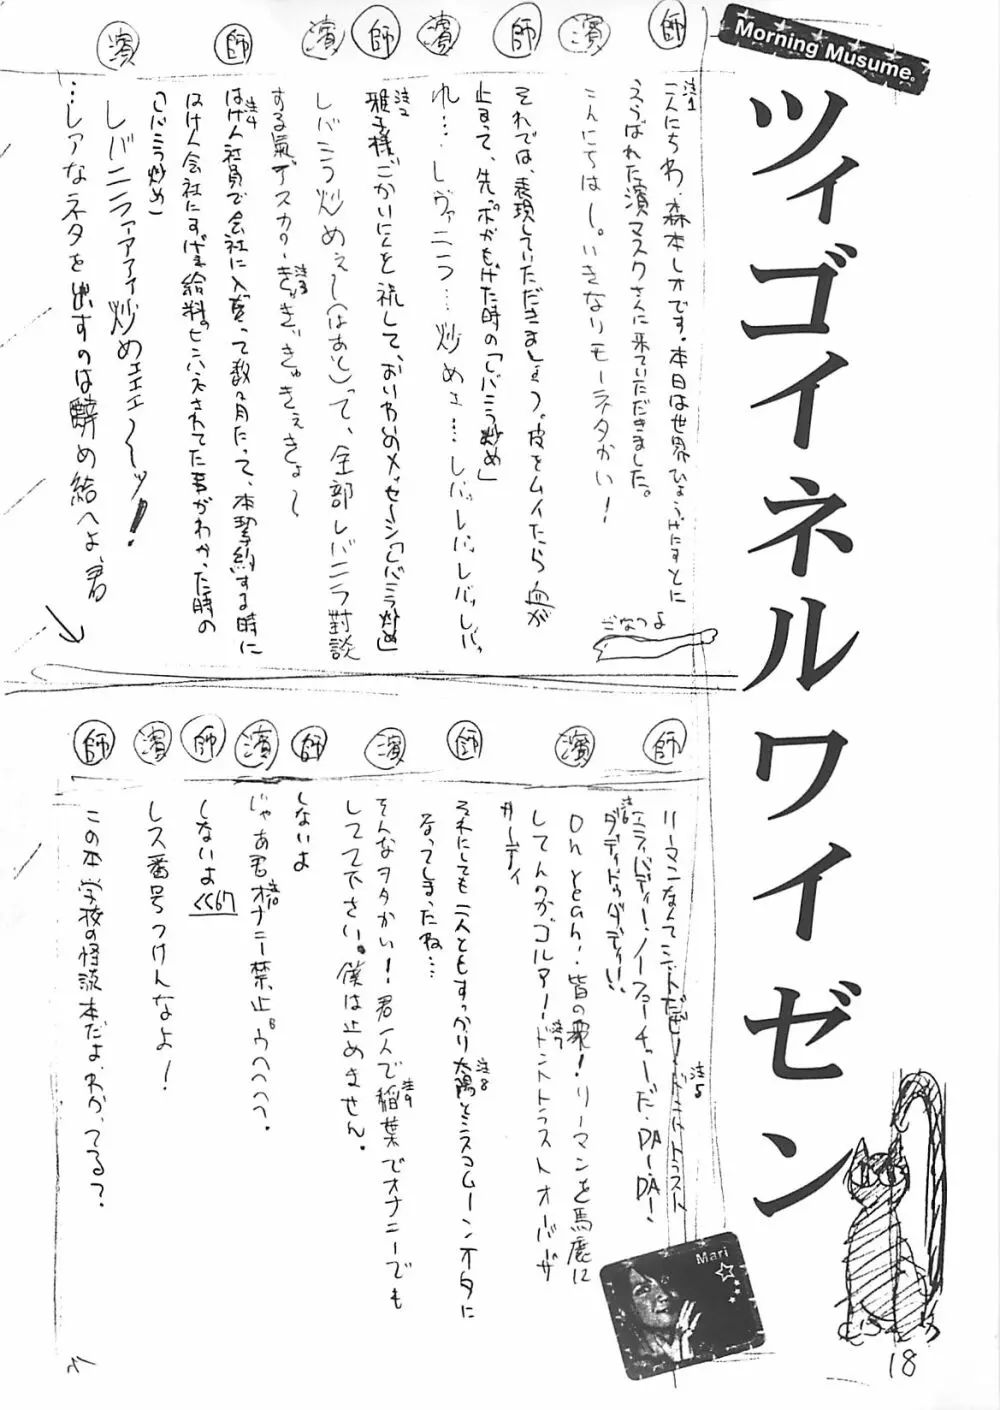 Morning Musume.
ツィゴイネルワイゼン
師
注1
こんにちわ、森本レオです。本日は世界ひょうじゅんすとに
えらばれた濱マスクさんに来ていただきました。
濱
こんにちはー。いきなりモーネタかい!
師
それでは、表現していただきましょう。皮をムイたら血が
止まって、先ッポがもげた時の「レバニラ炒め」
濱
れ…レヴァニラ…炒めェ…レバッレバッレバッレバッ
師
注2
雅子様ごかいにんを祝して、おいわめのメッセージ「レバニラ炒め」
濱
レバニラ炒めぇ〜(はあと)って、全部レバニラ對談
する氣デスカのーきゃきぃきゅきぇきょ〜
注3
師
注4
はけん社員で会社に入って数ヶ月たって、本契約する時に
はけん会社にすげぇ給料のピンハネされてた事がわかった時の
「レバニラ炒め」
濱
レバニラァァァ炒めェェェ〜〜ッ!
…レアなネタを出すのは辭め給へよ、君
ごなつよ
師
リーマンなんてミートだぜ!ドント トラスト
注5
注6
エライバディー!ノーフューチャーだ。DA!DA!
ダディドゥダディ!!
濱
Oh yeah!皆の衆!リーマンを馬鹿に
してんのかゴルアー!ドントトラストオーバーザ
注7
サーティ
師
それにしても二人ともすっかり太陽とシスコムーンオタに
注8
なってしまったね…
濱
そんなヲタかい!君一人で稲葉でオナニーでも
注9
してて下さい。僕は止めません。
師
しないよ
濱
じゃあ君オナニー禁止ゥヘヘヘヘ。
注10
師
しないよ <<67
濱
レス番号つけんなよ!
師
この本学校の怪談本だよ、わかってる?
Mari
18